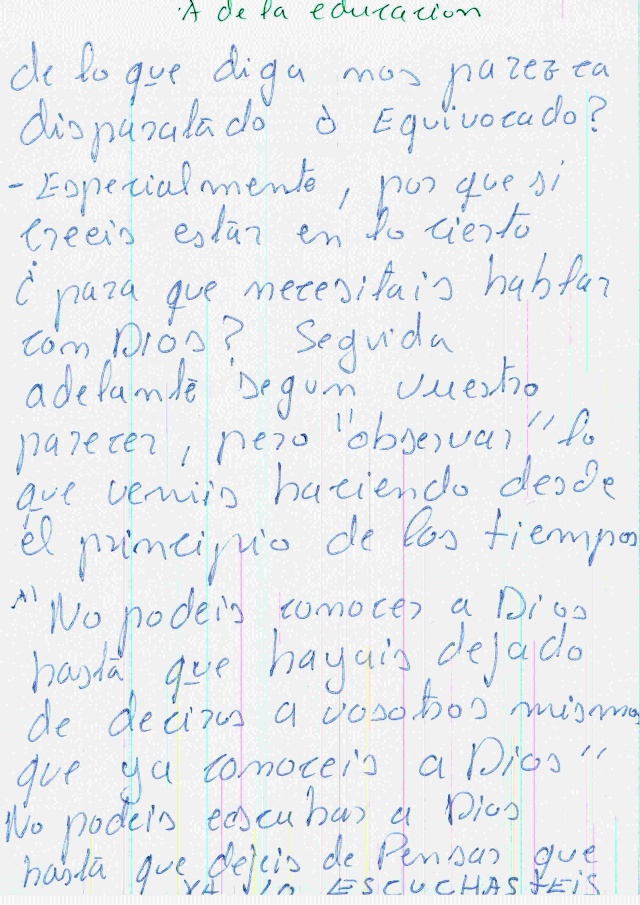 A de la educacion
de lo que diga nos parezca
disparatado ò Equivocado?
- Especialmente, por que si
creeis estar en lo cierto
¿ para que necesitais hablar
con Dios? Seguida
adelante segun vuestro
parecer, pero "observar" lo
que veniis haciendo desde
el principio de los tiempos
A) "No podeis conocer a Dios
hasta que hayais dejado
de deciros a vosotros mismos
que ya conoceis a Dios"
No podeis escuhar a Dios
hasta que dejeis de Pensar que
YA LO ESCUCHASTEIS